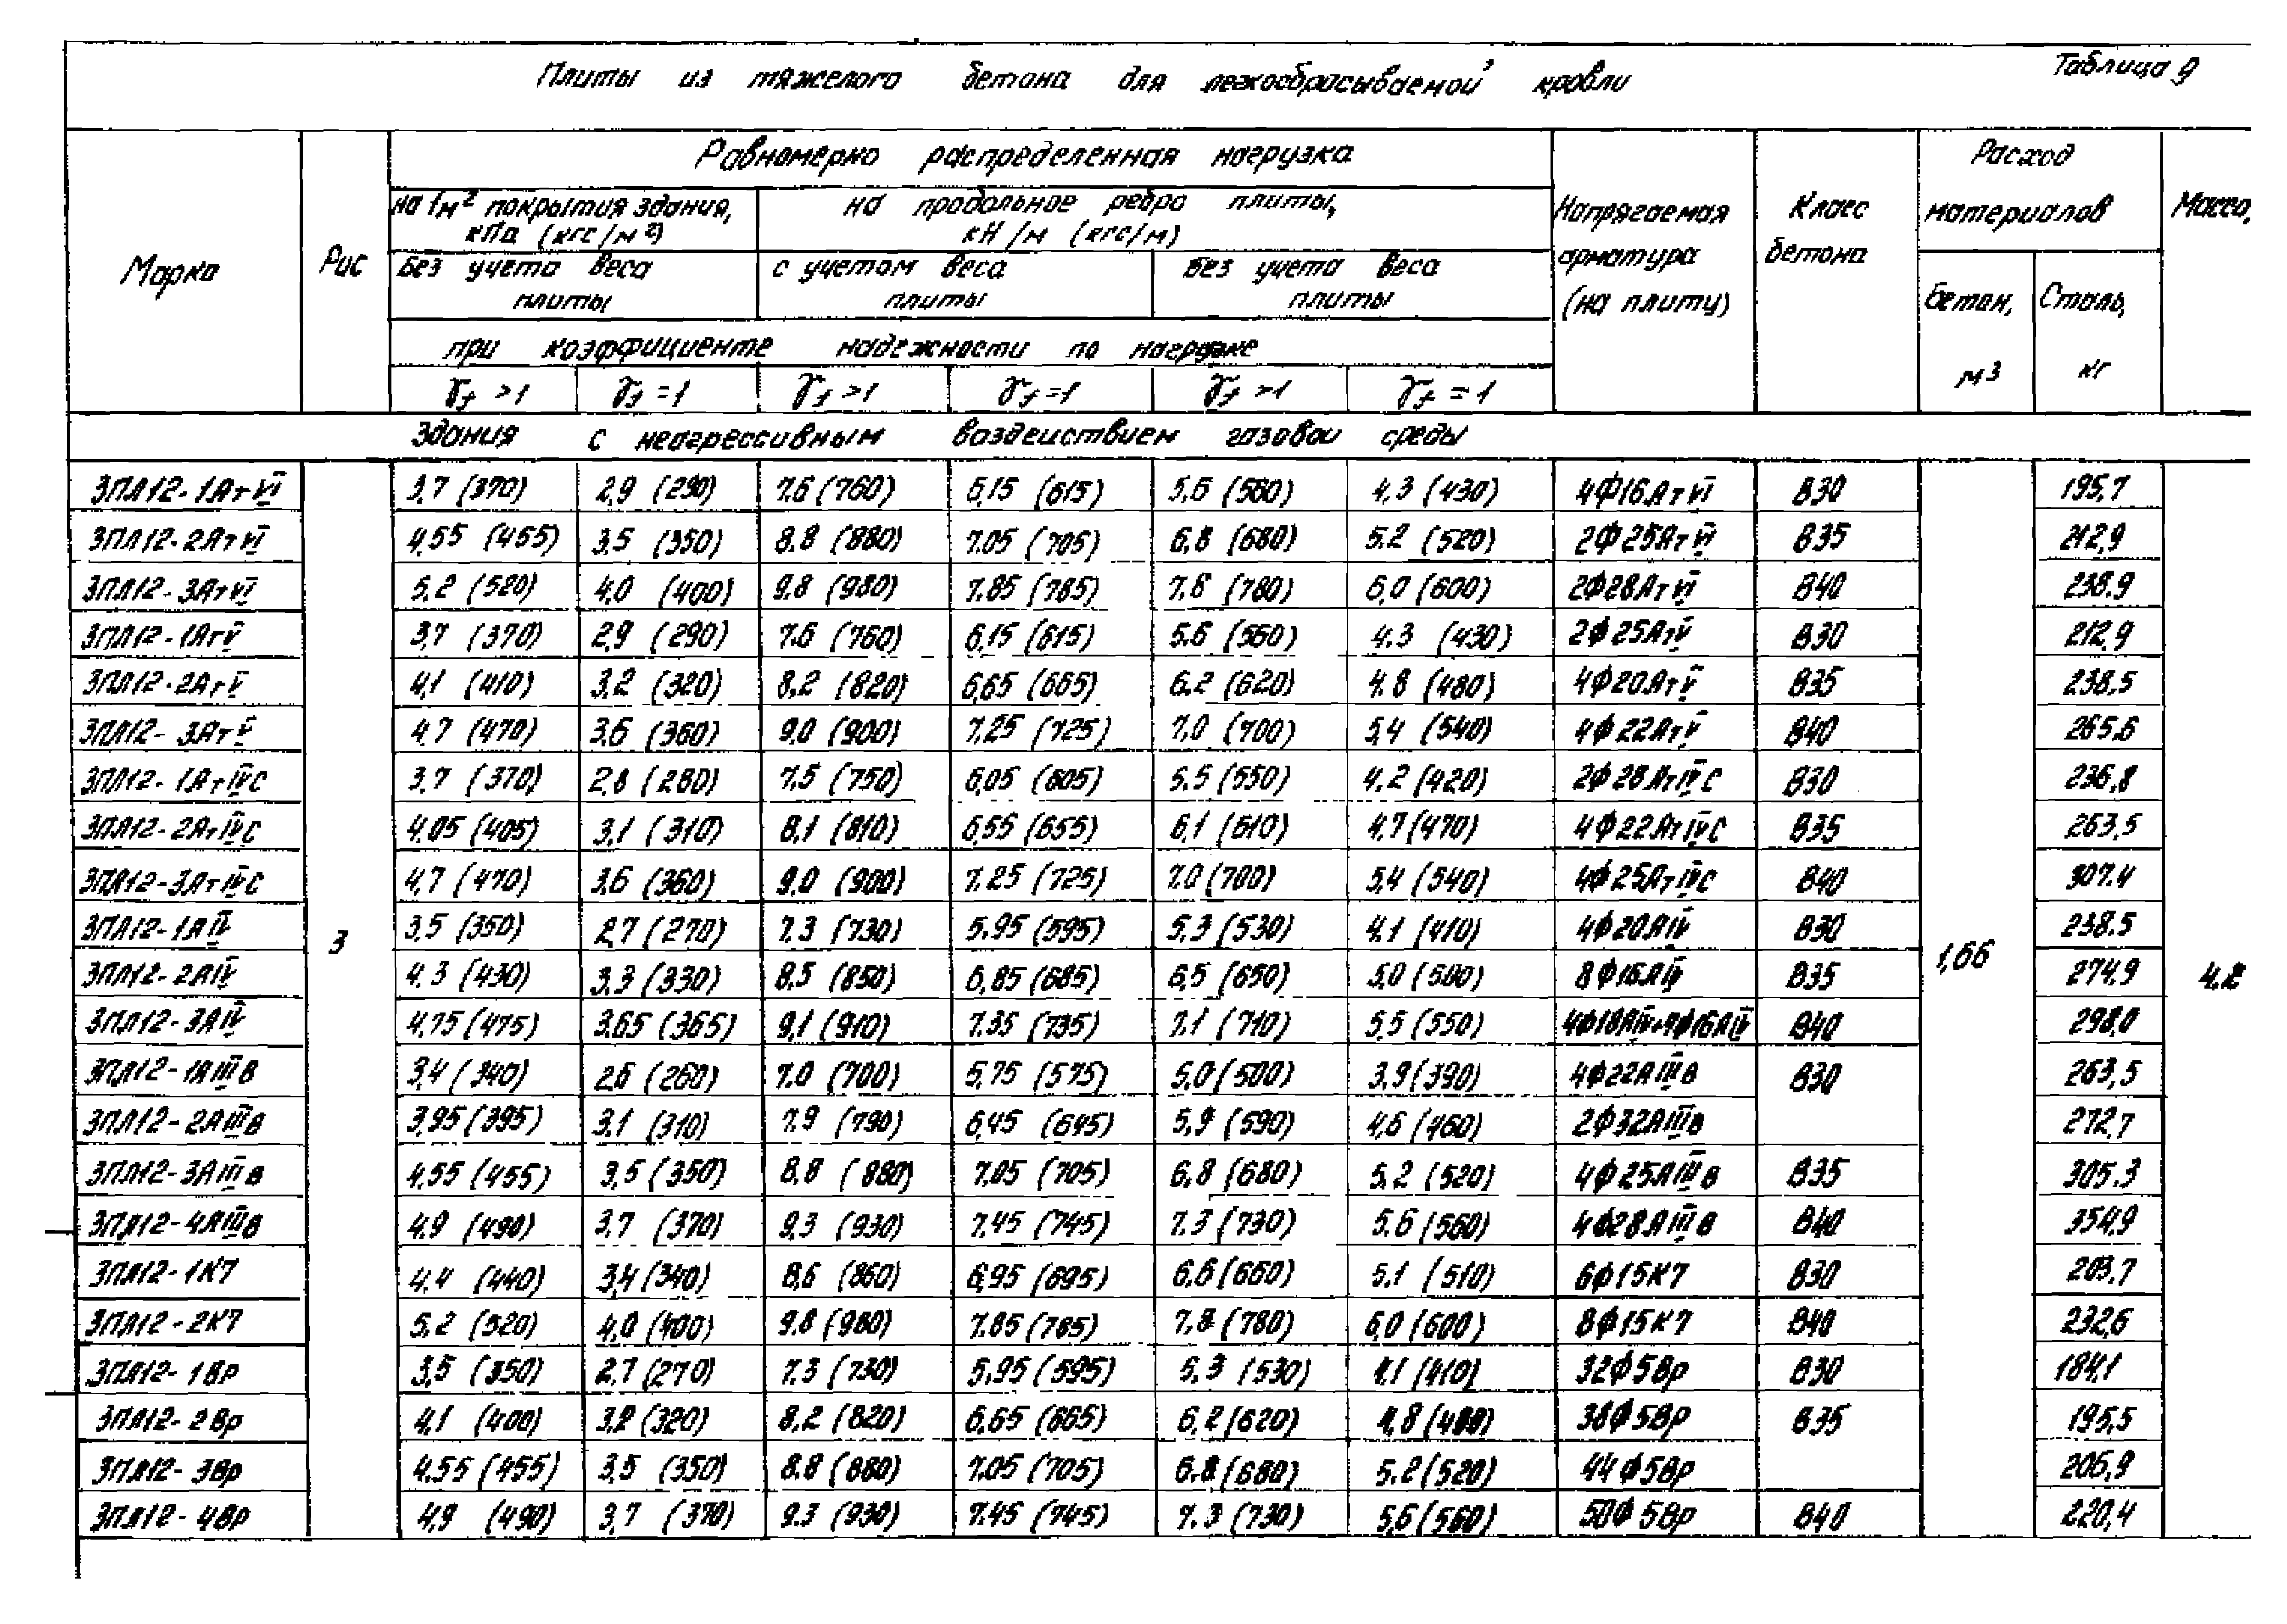 Таблица 9
Плиты из тяжелого бетона для легкосбрасываемой кровли
Марка
Рис
Равномерно распределенная нагрузка
на 1м² покрытия здания, кПа (кгс/м²)
на продольное ребро плиты, кН/м (кгс/м)
Без учета веса плиты
с учетом веса плиты
Без учета веса плиты
при коэффициенте надежности по нагрузке
γf >1 γf =1 γf >1 γf =1 γf >1 γf =1
Напрягаемая арматура (на плиту)
Класс бетона
Расход материалов
Бетон, м3
Сталь, кг
Масса,
Здания с неагрессивным воздействием газовой среды
3ПЛ12-1АтVI 3,7 (370) 2,9 (290) 7,6 (760) 6,15 (615) 5,6 (560) 4,3 (430) 4Ф16АтVI В30 195,7
3ПЛ12-2АтVI 4,55 (455) 3,5 (350) 8,8 (880) 7,05 (705) 6,8 (680) 5,2 (520) 2Ф25АтVI В35 212,9
3ПЛ12-3АтVI 5,2 (520) 4,0 (400) 9,8 (980) 7,85 (785) 7,8 (780) 6,0 (600) 2Ф28АтVI В40 238,9
3ПЛ12-1АтV 3,7 (370) 2,9 (290) 7,6 (760) 6,15 (615) 5,6 (560) 4,3 (430) 2Ф25АтV В30 212,9
3ПЛ12-2АтV 4,1 (410) 3,2 (320) 8,2 (820) 6,65 (665) 6,2 (620) 4,8 (480) 4Ф20АтV В35 238,5
3ПЛ12-3АтV 4,7 (470) 3,6 (360) 9,0 (900) 7,25 (725) 7,0 (700) 5,4 (540) 4Ф22АтV В40 265,6
3ПЛ12-1АтIVС 3,7 (370) 2,8 (280) 7,5 (750) 6,05 (605) 5,5 (550) 4,2 (420) 2Ф28АтIVС В30 236,8
3ПЛ12-2АтIVС 4,05 (405) 3,1 (310) 8,1 (810) 6,55 (655) 6,1 (610) 4,7 (470) 4Ф22АтIVС В35 263,5
3ПЛ12-3АтIVС 4,7 (470) 3,6 (360) 9,0 (900) 7,25 (725) 7,0 (700) 5,4 (540) 4Ф25АтIVС В40 307,4
3ПЛ12-1АIV 3,5 (350) 2,7 (270) 7,3 (730) 5,95 (595) 5,3 (530) 4,1 (410) 4Ф20АIV В30 238,5
3
1,66
3ПЛ12-2АIV 4,3 (430) 3,3 (330) 8,5 (850) 6,85 (685) 6,5 (650) 5,0 (500) 8Ф16АIV В35 274,9
4,2
3ПЛ12-3АIV 4,75 (475) 3,65 (365) 9,1 (910) 7,35 (735) 7,1 (710) 5,5 (550) 4Ф18АIV+4Ф16АIV В40 298,0
3ПЛ12-1АIIIв 3,4 (340) 2,6 (260) 7,0 (700) 5,75 (575) 5,0 (500) 3,9 (390) 4Ф22АIIIв В30 263,5
3ПЛ12-2АIIIв 3,95 (395) 3,1 (310) 7,9 (790) 6,45 (645) 5,9 (590) 4,6 (460) 2Ф32АIIIв 272,7
3ПЛ12-3АIIIв 4,55 (455) 3,5 (350) 8,8 (880) 7,05 (705) 6,8 (680) 5,2 (520) 4Ф25АIIIв В35 305,3
3ПЛ12-4АIIIв 4,9 (490) 3,7 (370) 9,3 (930) 7,45 (745) 7,3 (730) 5,6 (560) 4Ф28АIIIв В40 354,9
3ПЛ12-1К7 4,4 (440) 3,4 (340) 8,6 (860) 6,95 (695) 6,6 (660) 5,1 (510) 6Ф15К7 В30 203,7
3ПЛ12-2К7 5,2 (520) 4,0 (400) 9,8 (980) 7,85 (785) 7,8 (780) 6,0 (600) 8Ф15К7 В40 232,6
3ПЛ12-1Вр 3,5 (350) 2,7 (270) 7,3 (730) 5,95 (595) 5,3 (530) 4,1 (410) 32Ф5Вр В30 184,1
3ПЛ12-2Вр 4,1 (400) 3,2 (320) 8,2 (820) 6,65 (665) 6,2 (620) 4,8 (480) 38Ф5Вр В35 195,5
3ПЛ12-3Вр 4,55 (455) 3,5 (350) 8,8 (880) 7,05 (705) 6,8 (680) 5,2 (520) 44Ф5Вр 206,9
3ПЛ12-4Вр 4,9 (490) 3,7 (370) 9,3 (930) 7,45 (745) 7,3 (730) 5,6 (560) 50Ф5Вр В40 220,4